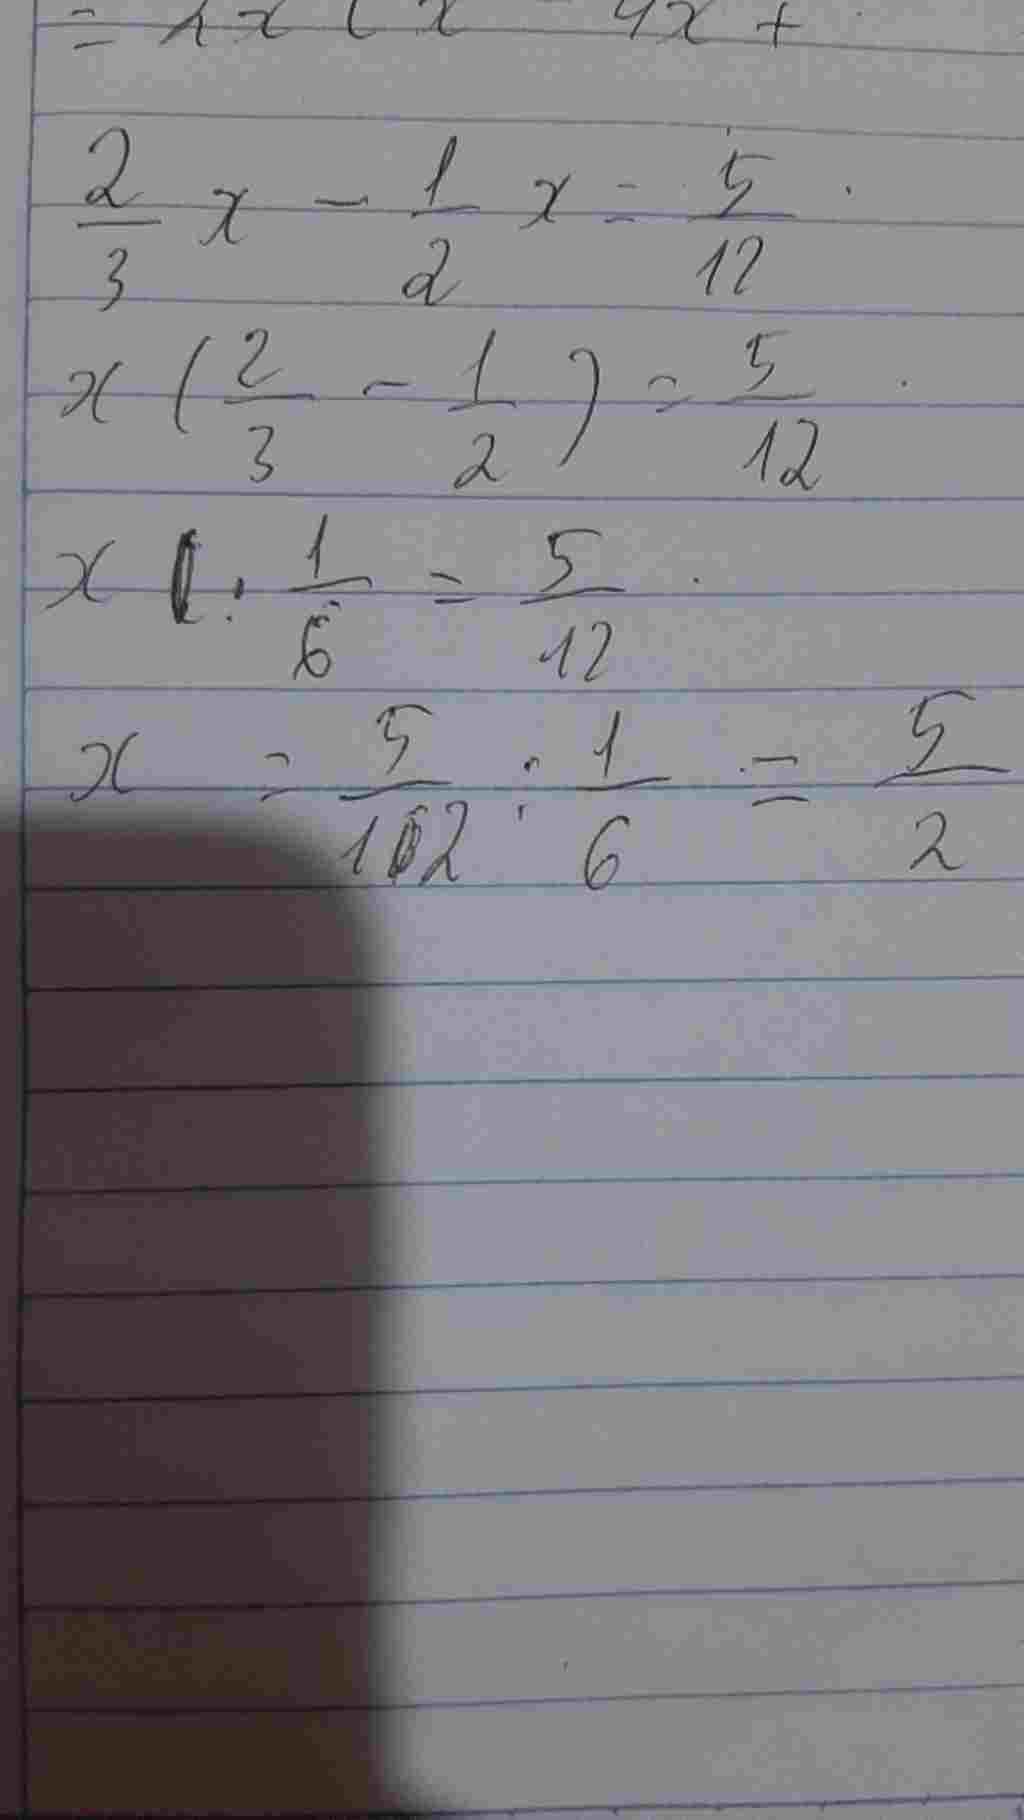 2/3 x - 1/2 x = 5/12 .
x ( 2/3 - 1/2 ) = 5/12 .
x . 1/6 = 5/12 .
x = 5/12 : 1/6 = 5/2